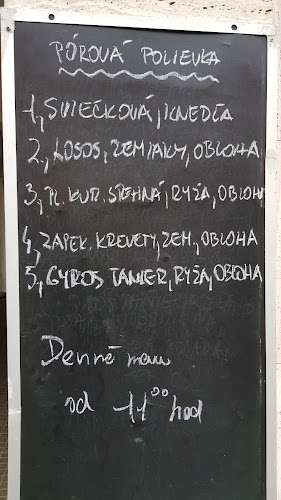 PÓROVÁ POLIEVKA
1, SVIEČKOVÁ, KNEDĽA
2, LOSOS, ZEMIAKY, OBLOHA
3, PL. KUR. STEHNÁ, RYŽA, OBLOHA
4, ZAPEK. KREVETY, ZEM., OBLOHA
5, GYROS TANIER, RYŽA, OBLOHA
Denné menu
od 11⁰⁰ hod